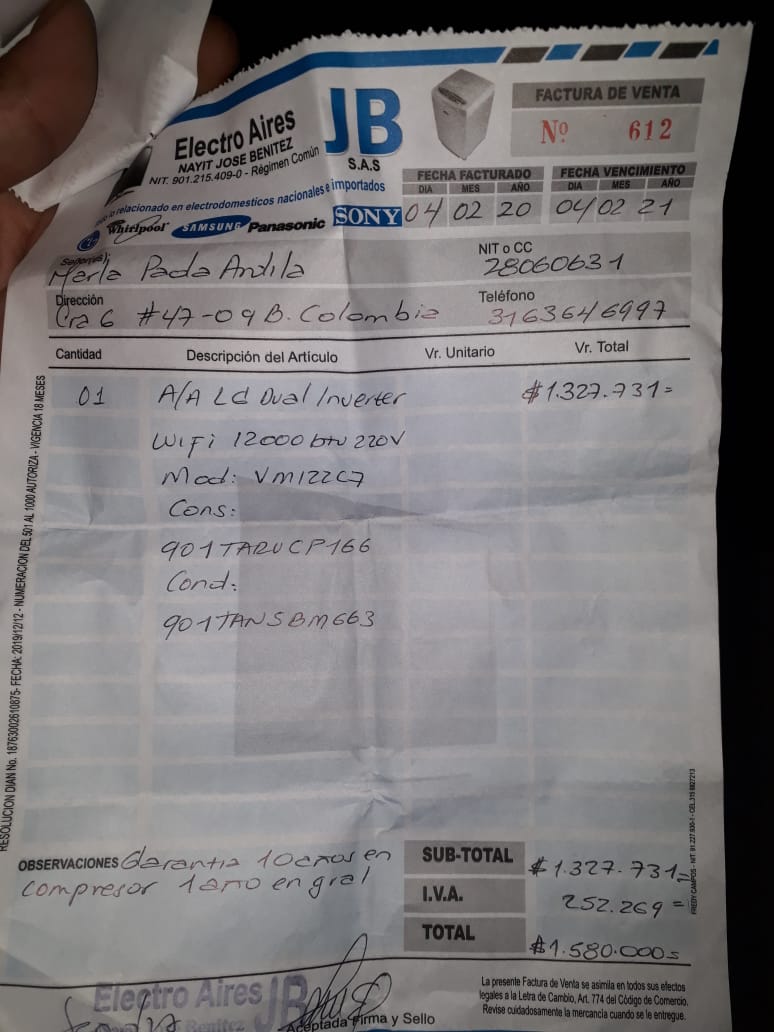 Electro Aires
JB
S.A.S
NAYIT JOSE BENITEZ
NIT. 901.215.409-0 - Régimen Común
lo relacionado en electrodomesticos nacionales e importados
LG Whirlpool SAMSUNG Panasonic SONY
FACTURA DE VENTA
Nº 612
FECHA FACTURADO FECHA VENCIMIENTO
DIA MES AÑO DIA MES AÑO
04 02 20 04 02 21
Señor(es) NIT o CC
Merla Paola 28060631
Dirección Teléfono
Cra 6 #47-09 B. Colombia 3163646997
Cantidad Descripción del Artículo Vr. Unitario Vr. Total
01 A/A LG Dual Inverter $1.327.731=
WiFi 12000 btu 220V
Mod: VM122C7
Cons:
901TARUCP166
Cond:
901TANSBM663
RESOLUCION DIAN No. 18763002610875- FECHA: 2019/12/12 - NUMERACION DEL 501 AL 1000 AUTORIZA - VIGENCIA 18 MESES
OBSERVACIONES Garantia 10 años en
compresor 1 año en gral
SUB-TOTAL $1.327.731=
I.V.A. 252.269=
TOTAL $1.580.000=
FREDY CAMPOS - NIT: 91.227.930-1 - CEL.
Electro Aires JB
Benitez
Aceptada Firma y Sello
La presente Factura de Venta se asimila en todos sus efectos
legales a la Letra de Cambio, Art. 774 del Código de Comercio.
Revise cuidadosamente la mercancía cuando se le entregue.